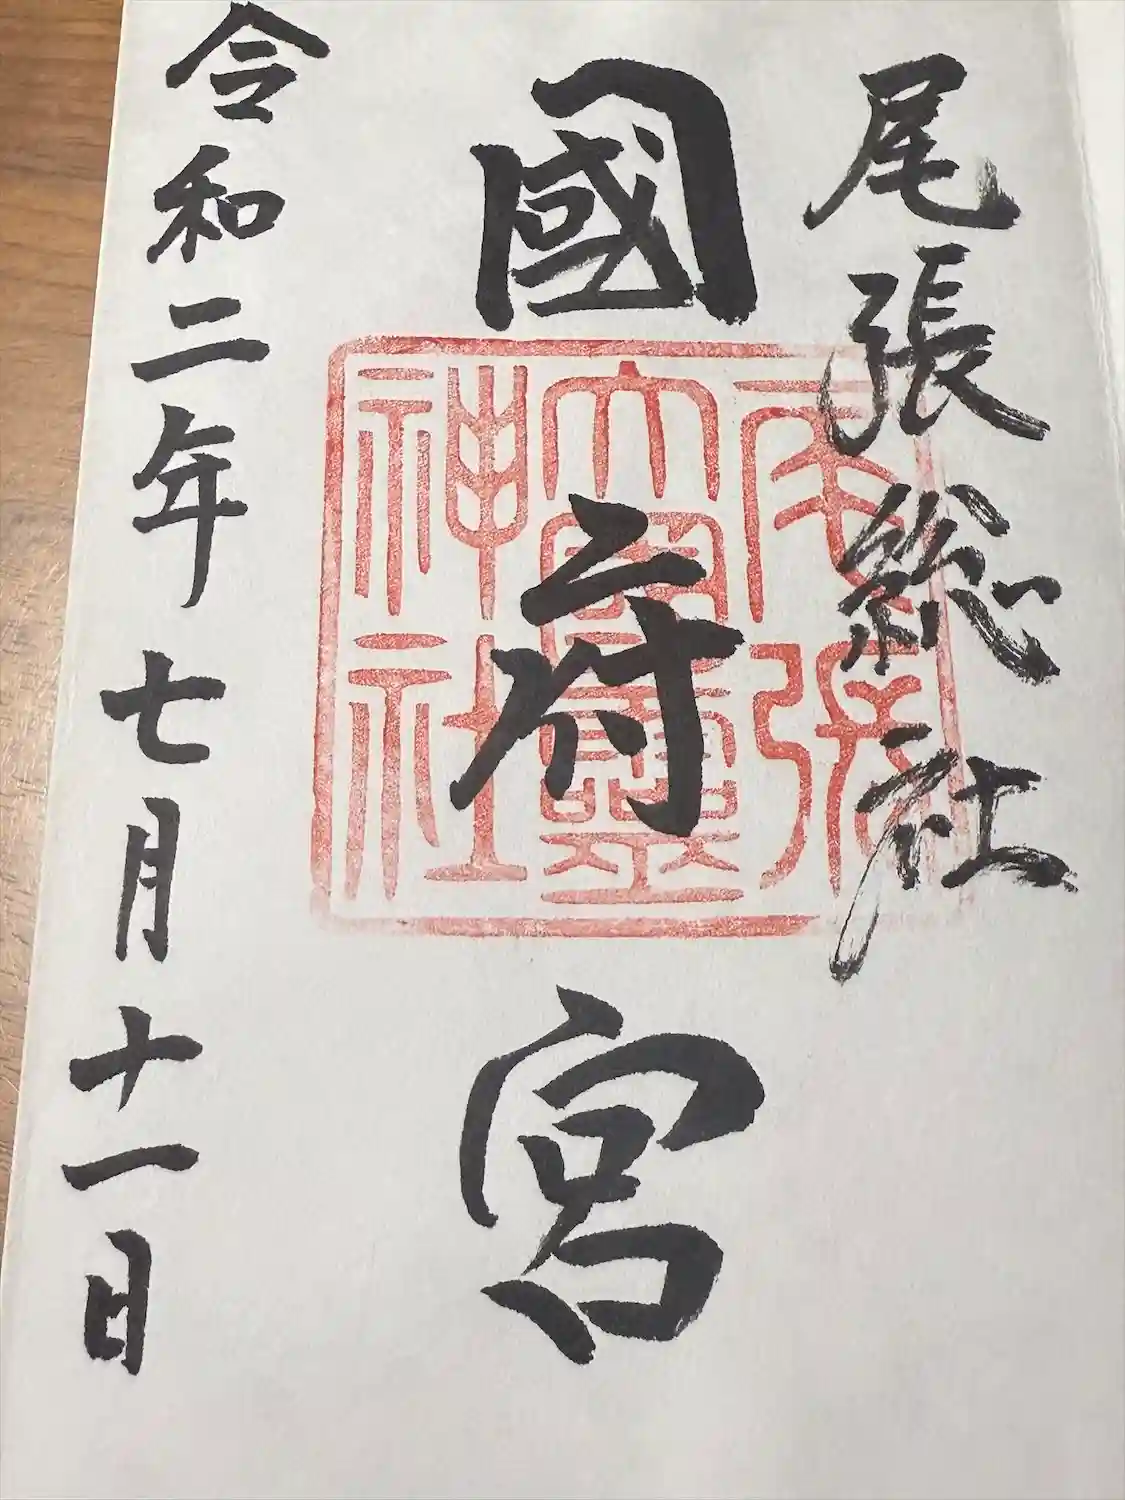 尾張総社
國府宮
尾張
大國霊
神社
令和二年七月十一日